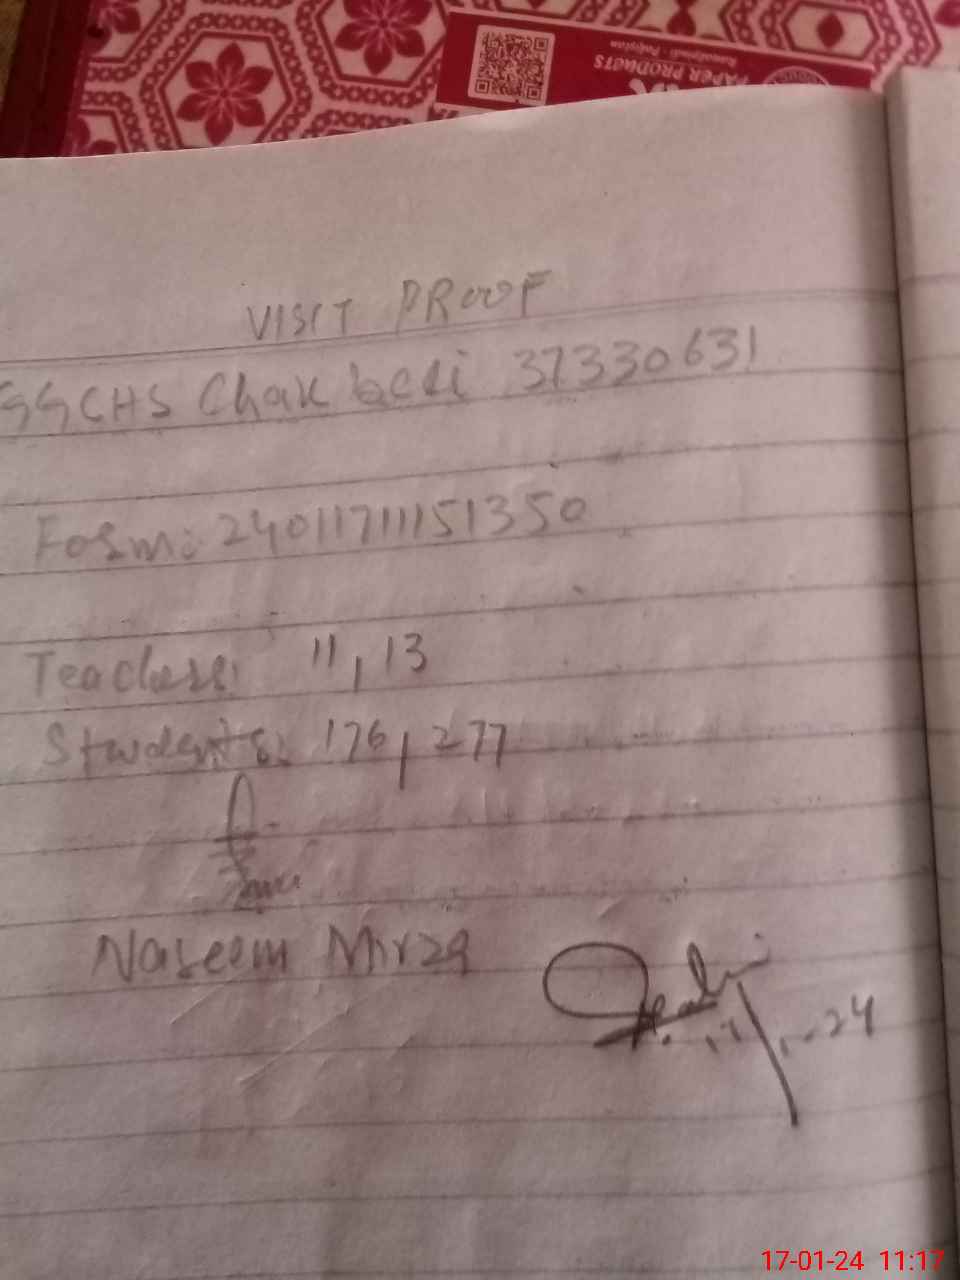 PAPER PRODUCTS
Rawalpindi - Pakistan
VISIT PROOF
GGCHS Chak beli 37330631
Form: 240117111151350
Teachers: 11, 13
Students: 176, 277
Naseem Mirza
17/1-24
17-01-24 11:17